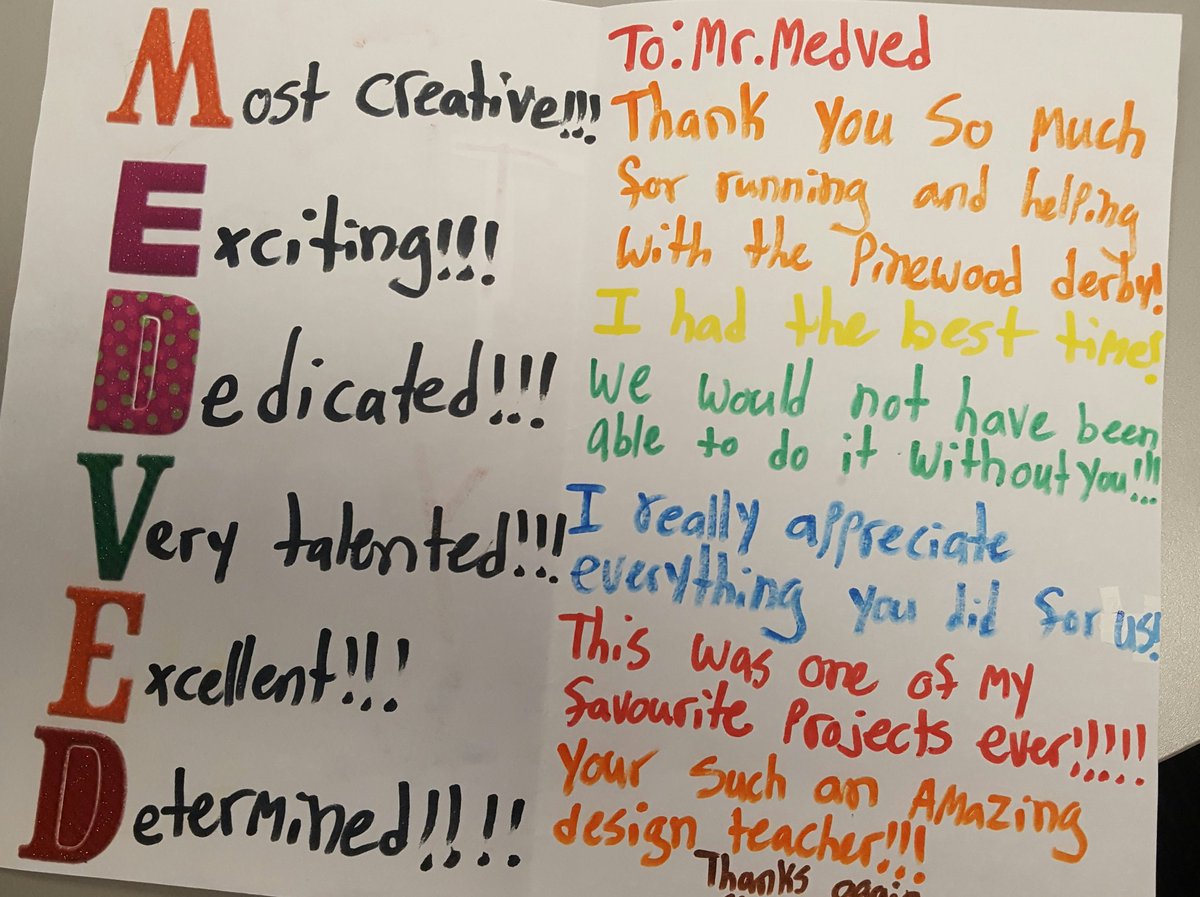 Most creative!!!
Exciting!!!
Dedicated!!!
Very talented!!!
Excellent!!!
Determined!!!!
To: Mr. Medved
Thank you so much
for running and helping
with the Pinewood derby!
I had the best time!
We would not have been
able to do it without you!!!
I really appreciate
everything you did for us!
This was one of my
favourite projects ever!!!!!
Your such an Amazing
design teacher!!!
Thanks again